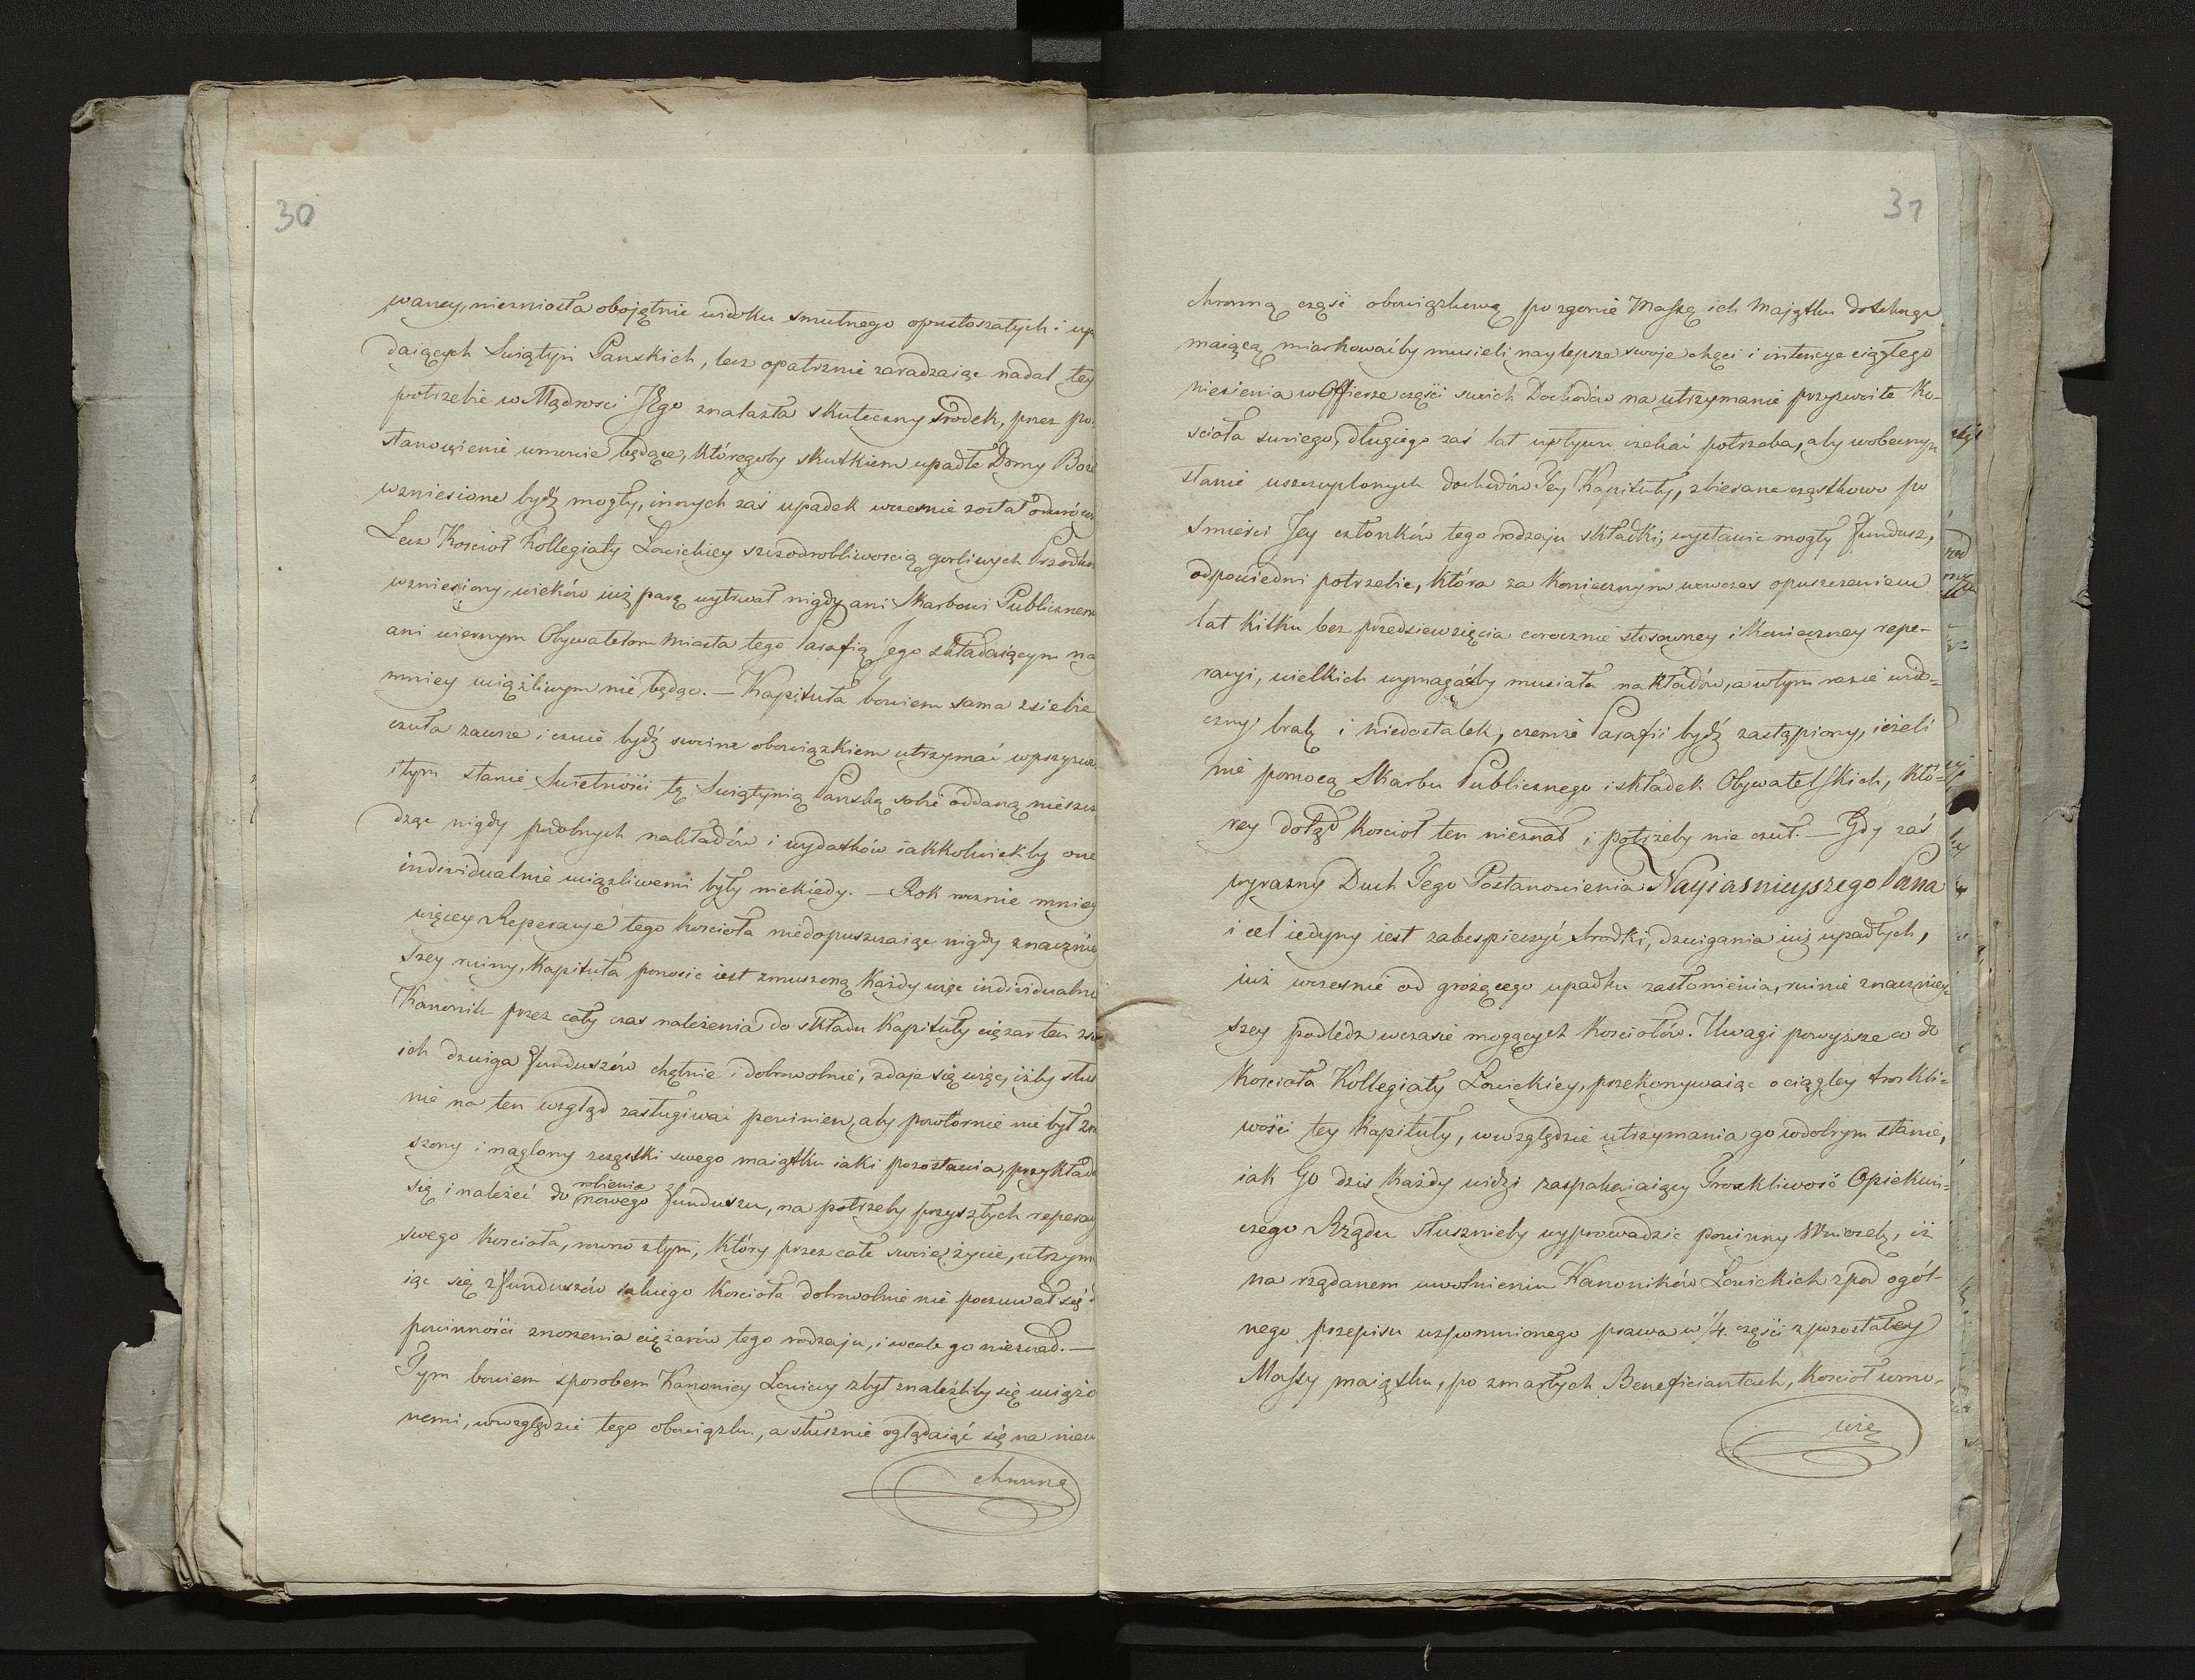 30
waney, niezniosła obojętnie widoku smutnego opustoszałych i upa
daiących Swiątyń Panskich, lecz opatrznie zaradzaiąc nadal tey
potrzebie w Mądrosci JEgo znalazła skuteczny srodek, przez po-
stanowienie wmowie będące, któregoby skutkiem upadłe Domy Boże
wzniesione bydź mogły, innych zaś upadek wczesnie został odwrócon
Lecz Kosciół Kollegiaty Łowickiey szczodrobliwoscią gorliwych Przodków
wzniesiony, wieków iuż parę wytrwał nigdy ani Skarbowi Publicznemu
ani wiernym Obywatelom Miasta tego Parafią Jego składaiącym nay
mniey uciążliwym nie będąc. — Kapituła bowiem sama z siebie
czuła zawsze i czuie bydź swoim obowiązkiem utrzymać w przyzwo-
itym stanie Swietności tę Swiątynią Panską sobie oddaną nieszczę
dząc nigdy podobnych nakładów i wydatków iakkolwiekby one
individualnie uciążliwemi były niekiedy. — Rok rocznie mniey
więcey Reperacye tego Koscioła niedopuszczaiąc nigdy znacznie
szey ruiny, Kapituła ponosic iest zmuszoną Każdy więc individualnie
Kanonik przez cały czas należenia do składu Kapituły ciężar ten zsw
ich dzwiga funduszów chętnie i dobrowolnie, zdaje się więc, iżby słusz
nie na ten wzgląd zasługiwać powinien, aby powtornie nie był zmu
szony i naglony zcząstki swego maiątku iaki pozostawia, przykłada
się i należeć do robienia nowego funduszu, na potrzeby przyszłych reperacy
swego Koscioła, rowno ztym, który przez całe swoie życie, utrzymu
iąc się z funduszów takiego Koscioła dobrowolnie nie poczuwał się d
powinności znoszenia ciężarów tego rodzaju, i wcale go nieznał. —
Tym bowiem sposobem Kanonicy Łowiccy zbyt znaleźliby się uciążo
nemi, wwzględzie tego obowiązku, a słusznie oglądaiąc się na nieu
chronną
31
chronną część obowiązkową po zgonie Massę ich Majątku dotchnąc
maiącą miarkowaćby musieli naylepsze swoje chęci i intencye ciągłego
niesienia w Offierze części swoich Dochodów na utrzymanie przyzwoite Ko-
scioła swiego, długiego zaś lat upływu czekać potrzeba, aby wobecnym
stanie uszczuplonych dochodów Jey Kapituły, zbierane cząstkowo po
Smierci Jey członków tego rodzaju składki, wystawic mogły fundusz,
odpowiedni potrzebie, która za Koniecznym wowczas opuszczeniem
lat kilku bez przedsiewzięcia corocznie stosowney i Konieczney repe-
racyi, wielkich wymagaćby musiała nakładów, a wtym razie wido-
czny bralę i niedostatek, czemże Parafii bydź zastąpiony, ieżeli
nie pomocą Skarbu Publicznego i składek Obywatelskich, któ-
rey dotąd Kosciół ten nieznał i potrzeby nie czuł. — Gdy zaś
wyrazny Duch Tego Postanowienia Nayiasnieyszego Pana
i cel iedyny iest zabespieczyć srodki, dzwigania iuż upadłych,
iuż wczesnie od grożącego upadku zasłonienia, ruinie znaczniey-
szey podledz wczasie mogących Kosciołów. Uwagi powyższe co do
Koscioła Kollegiaty Łowickiey, przekonywaiąc o ciągłey troskli-
wości tey Kapituły, wwzględzie utrzymania go wdobrym stanie,
iak Go dzis każdy widzi zaspakajaiący Troskliwość Opiekuń-
czego Rządu słusznieby wyprowadzic powinny Wniosek, iż
na żądanem uwolnieniu Kanoników Łowickich zpod ogól-
nego przepisu uspomnionego prawa w 1/4. części z pozostałey
Massy maiątku, po zmarłych Beneficiantach, Kosciół umo-
wie